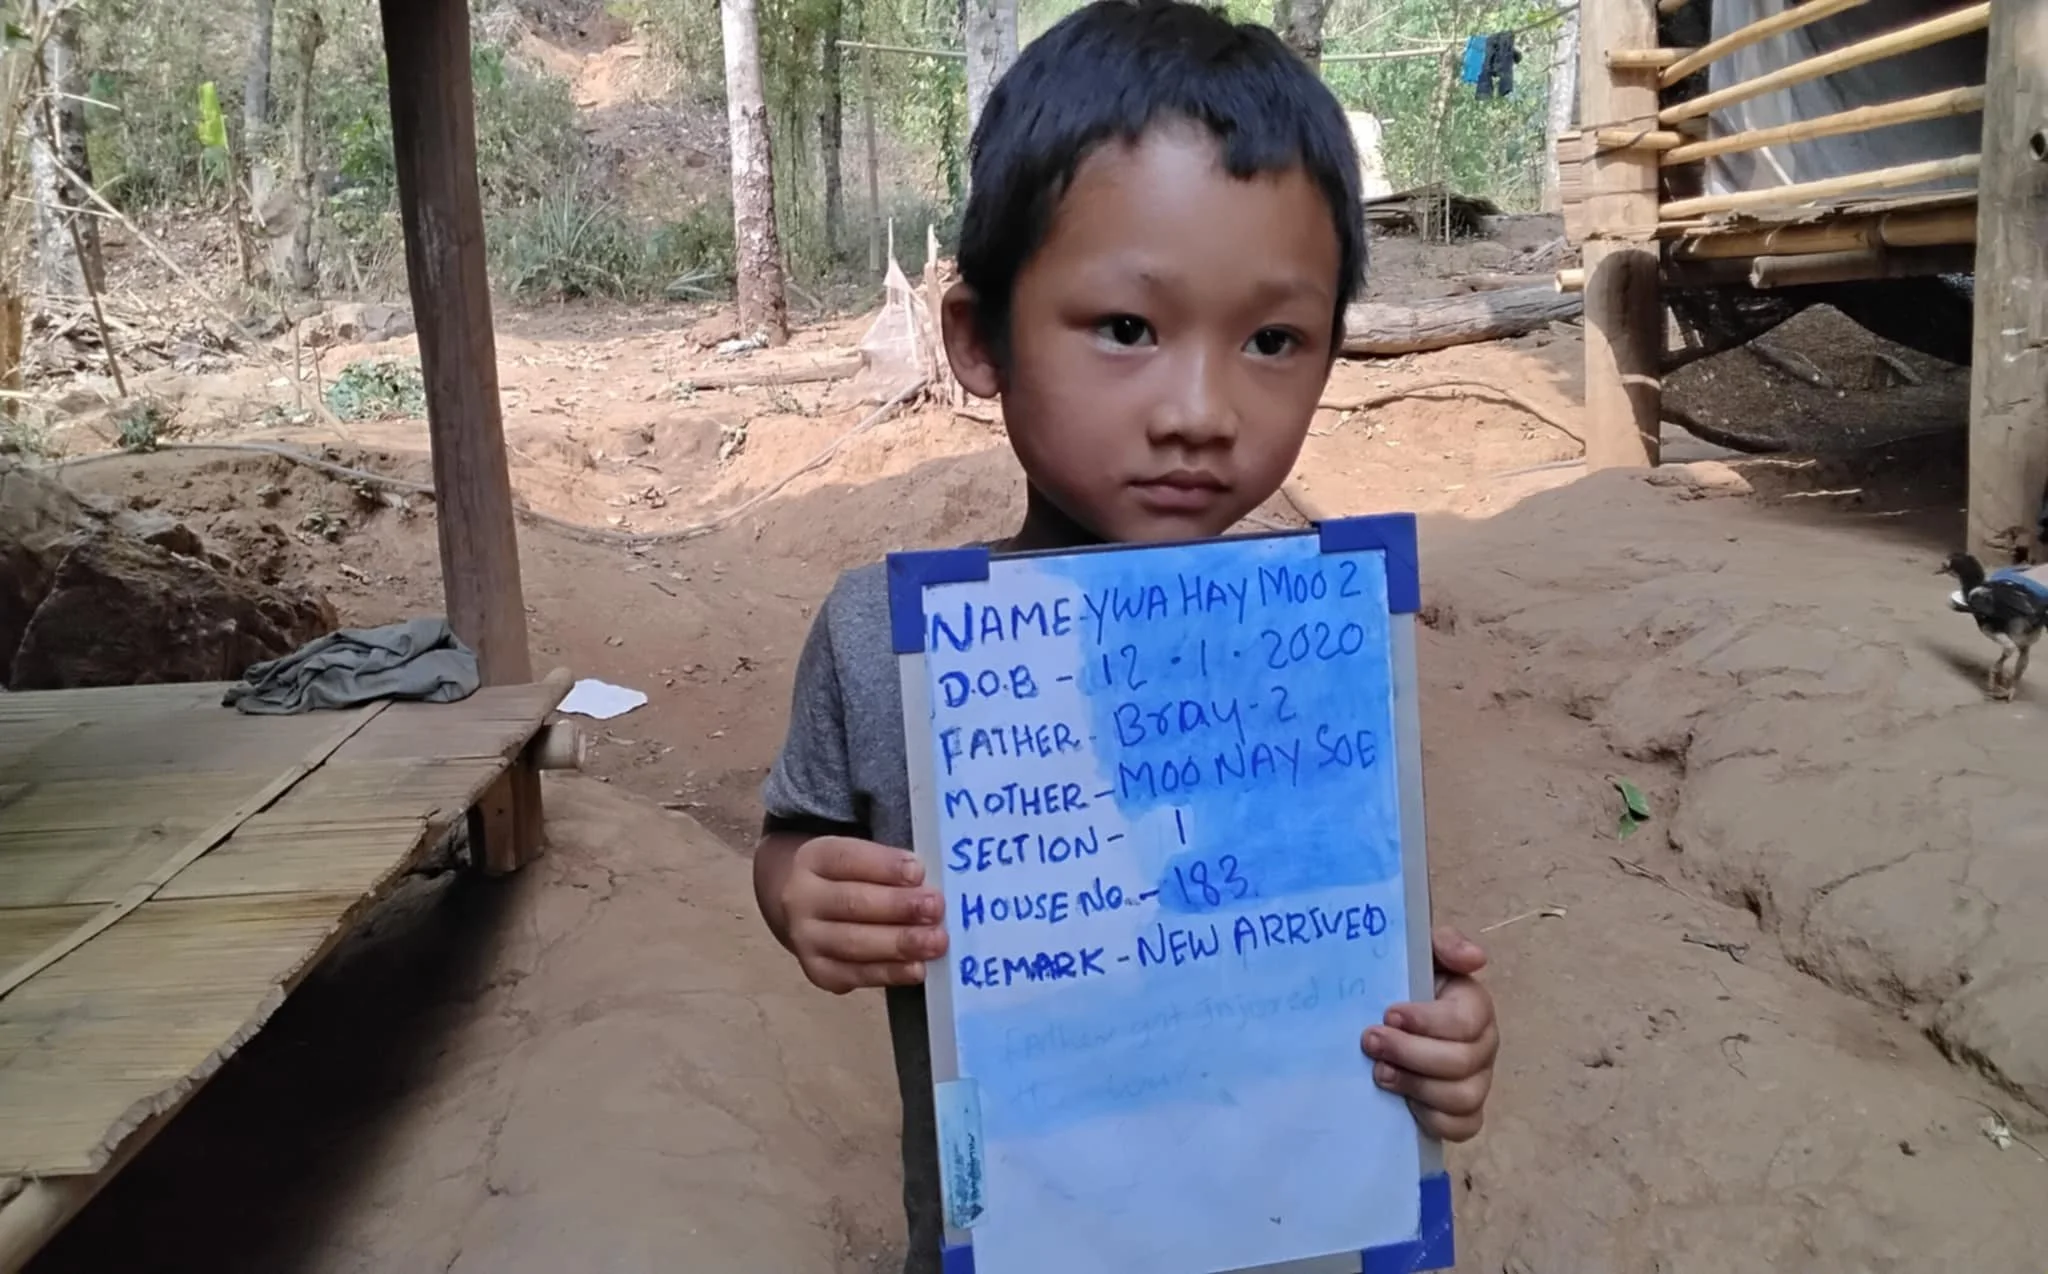 NAME-YWA HAY MOO 2
D.O.B - 12.1.2020
FATHER- Bray-2
MOTHER-MOO NAY SOE
SECTION- 1
HOUSE No.-183.
REMARK-NEW ARRIVED
Father got Injured in